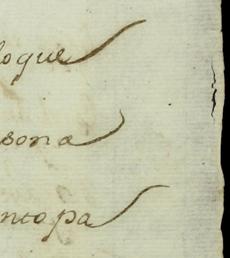 loque
sona
ntopa